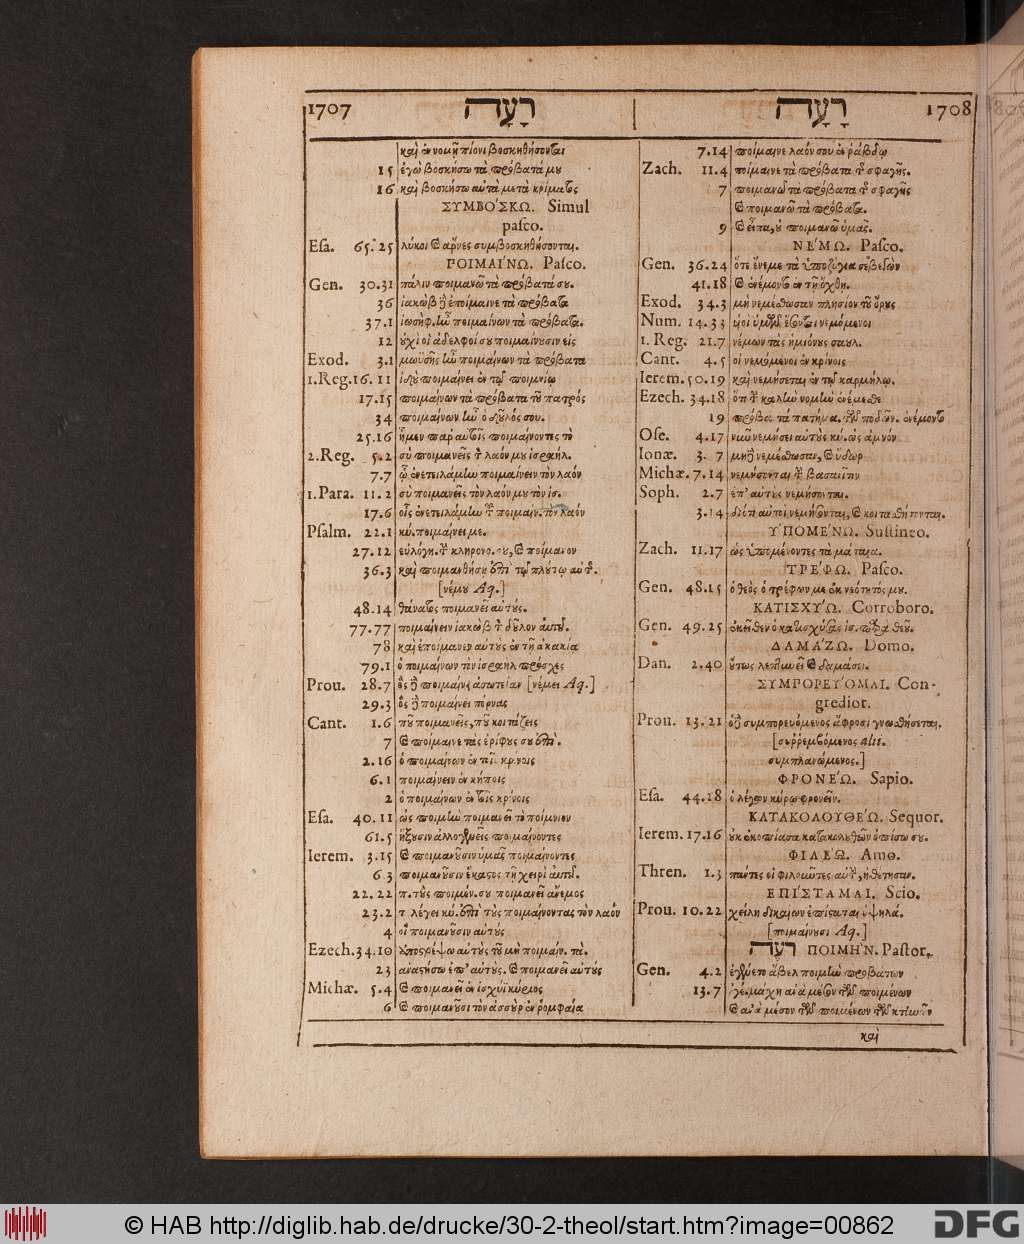 1707 רָעָה
καὶ ἐν νομῇ πίονι βοσκηθήσονται
15 ἐγὼ βοσκήσω τὰ πρόβατά μου
16 καὶ βοσκήσω αὐτὰ μετὰ κρίματος
ΣΥΜΒΟ΄ΣΚΩ. Simul
paſco.
Eſa. 65.25 λύκοι καὶ ἄρνες συμβοσκηθήσονται.
ΓΟΙΜΑΙ΄ΝΩ. Paſco.
Gen. 30.31 πάλιν ποιμανῶ τὰ πρόβατά σου.
36 ἰακὼβ δὲ ἐποίμαινε τὰ πρόβατα
37.1 ἰωσὴφ. ἦν ποιμαίνων τὰ πρόβατα.
12 οὐχὶ οἱ ἀδελφοί σου ποιμαίνουσιν εἰς
Exod. 3.1 μωϋσῆς ἦν ποιμαίνων τὰ πρόβατα
1.Reg. 16.11 ἰδοὺ ποιμαίνει ἐν τῷ ποιμνίῳ
17.15 ποιμαίνων τὰ πρόβατα τοῦ πατρός
34 ποιμαίνων ἦν ὁ δοῦλός σου.
25.16 ἦμεν παρ' αὐτοῖς ποιμαίνοντες τὸ
2.Reg. 5.2 σὺ ποιμανεῖς τὸν λαόν μου ἰσραήλ.
7.7 ᾧ ἐνετειλάμην ποιμαίνειν τὸν λαόν
1.Para. 11.2 σὺ ποιμανεῖς τὸν λαόν μου τὸν ἰσ.
17.6 οἷς ἐνετειλάμην τοῦ ποιμαίν. τὸν λαόν
Pſalm. 22.1 κύ. ποιμαίνει με.
27.12 εὐλόγη. τὴν κληρονο. σου, καὶ ποίμανον
36.3 καὶ ποιμανθήσῃ ἐπὶ τῷ πλούτῳ αὐτῆς.
[νέμου Aq.]
48.14 θάνατος ποιμανεῖ αὐτούς.
77.77 ποιμαίνειν ἰακὼβ τὸν δοῦλον αὐτοῦ.
78 καὶ ἐποίμανεν αὐτοὺς ἐν τῇ ἀκακίᾳ
79.1 ὁ ποιμαίνων τὸν ἰσραὴλ πρόσχες
Prou. 28.7 ὃς δὲ ποιμαίνει ἀσωτείαν [νέμει Aq.]
29.3 ὃς δὲ ποιμαίνει πόρνας
Cant. 1.6 ποῦ ποιμαίνεις, ποῦ κοιτάζεις
7 καὶ ποίμαινε τὰς ἐρίφους σου ἐπὶ.
2.16 ὁ ποιμαίνων ἐν τοῖς κρίνοις
6.1 ποιμαίνειν ἐν κήποις
2 ὁ ποιμαίνων ἐν τοῖς κρίνοις
Eſa. 40.11 ὡς ποιμὴν ποιμανεῖ τὸ ποίμνιον
61.5 ἥξουσιν ἀλλογενεῖς ποιμαίνοντες
Ierem. 3.15 καὶ ποιμανοῦσιν ὑμᾶς ποιμαίνοντες
6.3 ποιμανοῦσιν ἕκαστος τῇ χειρὶ αὐτοῦ.
22.22 π. τοὺς ποιμέν. σου ποιμανεῖ ἄνεμος
23.2 τ λέγει κύ. ἐπὶ τοὺς ποιμαίνοντας τὸν λαόν
4 οἳ ποιμανοῦσιν αὐτούς
Ezech. 34.10 ἀποστρέψω αὐτοὺς τοῦ μὴ ποιμαίν. τὰ.
23 ἀναστήσω ἐπ' αὐτούς. καὶ ποιμανεῖ αὐτούς
Michæ. 5.4 καὶ ποιμανεῖ ἐν ἰσχύϊ κύριος
6 καὶ ποιμανοῦσι τὸν ἀσσοὺρ ἐν ῥομφαίᾳ
רָעָה 1708
7.14 ποίμαινε λαόν σου ἐν ῥάβδῳ
Zach. 11.4 ποίμαινε τὰ πρόβατα τῆς σφαγῆς.
7 ποιμανῶ τὰ πρόβατα τῆς σφαγῆς
καὶ ποιμανῶ τὰ πρόβατα.
9 καὶ εἶπα, οὐ ποιμανῶ ὑμᾶς.
ΝΕ΄ΜΩ. Paſco.
Gen. 36.24 ὅτε ἔνεμε τὰ ὑποζύγια σεβεγὼν
41.18 καὶ ἐνέμοντο ἐν τῇ ὄχθῃ.
Exod. 34.3 μὴ νεμέσθωσαν πλησίον τοῦ ὄρους
Num. 14.33 υἱοὶ ὑμῶν ἔσονται νεμόμενοι
1. Reg. 21.7 νέμων τὰς ἡμιόνους σαούλ.
Cant. 4.5 οἱ νεμόμενοι ἐν κρίνοις
Ierem. 50.19 καὶ νεμήσεται ἐν τῷ καρμήλῳ.
Ezech. 34.18 ὅτι τὴν καλὴν νομὴν ἐνέμεσθε
19 πρόβα. τὰ πατήμα. τῶν ποδῶν. ἐνέμοντο
Oſe. 4.17 νῦν νεμήσει αὐτοὺς κύ. ὡς ἀμνόν
Ionæ. 3. 7 μηδὲ νεμέσθωσαν, καὶ ὕδωρ
Michæ. 7.14 νεμήσονται τὴν βασανῖτιν
Soph. 2.7 ἐπ' αὐτοὺς νεμήσονται.
3.14 διότι αὐτοὶ νεμήσονται, καὶ κοιτασθήσονται.
ΥΠΟΜΕ΄ΝΩ. Suſtineo.
Zach. 11.17 ὡς ὑπομένοντες τὰ μάταια.
ΤΡΕ΄ΦΩ. Paſco.
Gen. 48.15 ὁ θεὸς ὁ τρέφων με ἐκ νεότητός μου.
ΚΑΤΙΣΧΥ΄Ω. Corroboro.
Gen. 49.25 ἐκεῖθεν ὁ κατισχύσας ἰσ. παρὰ θεοῦ.
ΔΑΜΑ΄ΖΩ. Domo.
Dan. 2.40 οὕτως λεπτυνεῖ καὶ δαμάσει.
ΣΥΜΠΟΡΕΥ΄ΟΜΑΙ. Con-
gredior.
Prou. 13.21 ὁ δὲ συμπορευόμενος ἄφροσι γνωσθήσεται.
[συῤῥεμβόμενος Alit.
συμπλανώμενος.]
ΦΡΟΝΕ΄Ω. Sapio.
Eſa. 44.18 ὁ λέγων κύρῳ φρονεῖν.
ΚΑΤΑΚΟΛΟΥΘΕ΄Ω. Sequor.
Ierem. 17.16 οὐκ ἐκοπίασα κατακολουθῶν ὀπίσω σου.
ΦΙΛΕ΄Ω. Amo.
Thren. 1.3 πάντες οἱ φιλοῦντες αὐτήν, ἠθέτησαν.
ΕΠΙ΄ΣΤΑΜΑΙ. Scio.
Prou. 10.22 χείλη δικαίων ἐπίσταται ὑψηλά.
[ποιμαίνουσι Aq.]
רעה ΠΟΙΜΗ΄Ν. Paſtor.
Gen. 4.2 ἐγένετο ἄβελ ποιμὴν προβάτων
13.7 ἐγέ. μάχη ἀνὰ μέσον τῶν ποιμένων
καὶ ἀνὰ μέσον τῶν ποιμένων τῶν κτηνῶν
καὶ
© HAB http://diglib.hab.de/drucke/30-2-theol/start.htm?image=00862
DFG